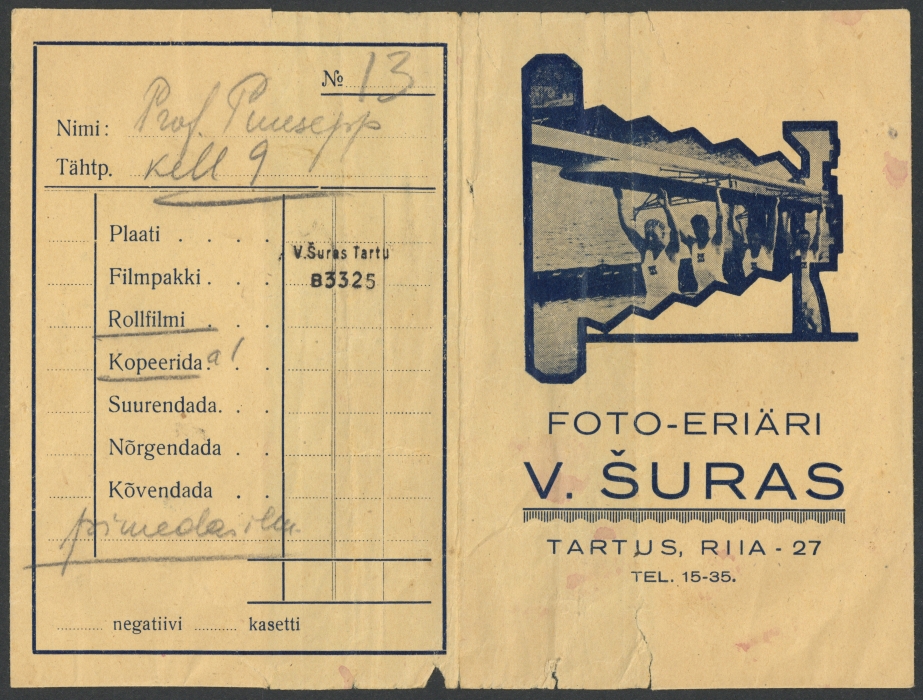 № 13
Nimi: Prof. Puusepp
Tähtp. kell 9
Plaati . . . .
Filmpakki . . .
Rollfilmi . . .
Kopeerida a 1
Suurendada. . .
Nõrgendada . .
Kõvendada . .
V.Šuras Tartu
B3325
negatiivi kasetti
FOTO-ERIÄRI
V. ŠURAS
TARTUS, RIIA - 27
TEL. 15-35.